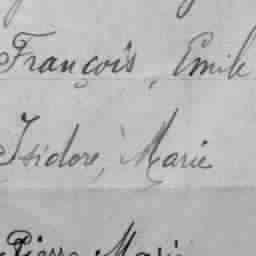 François, Emile
Isidore, Marie
Pierre Marie